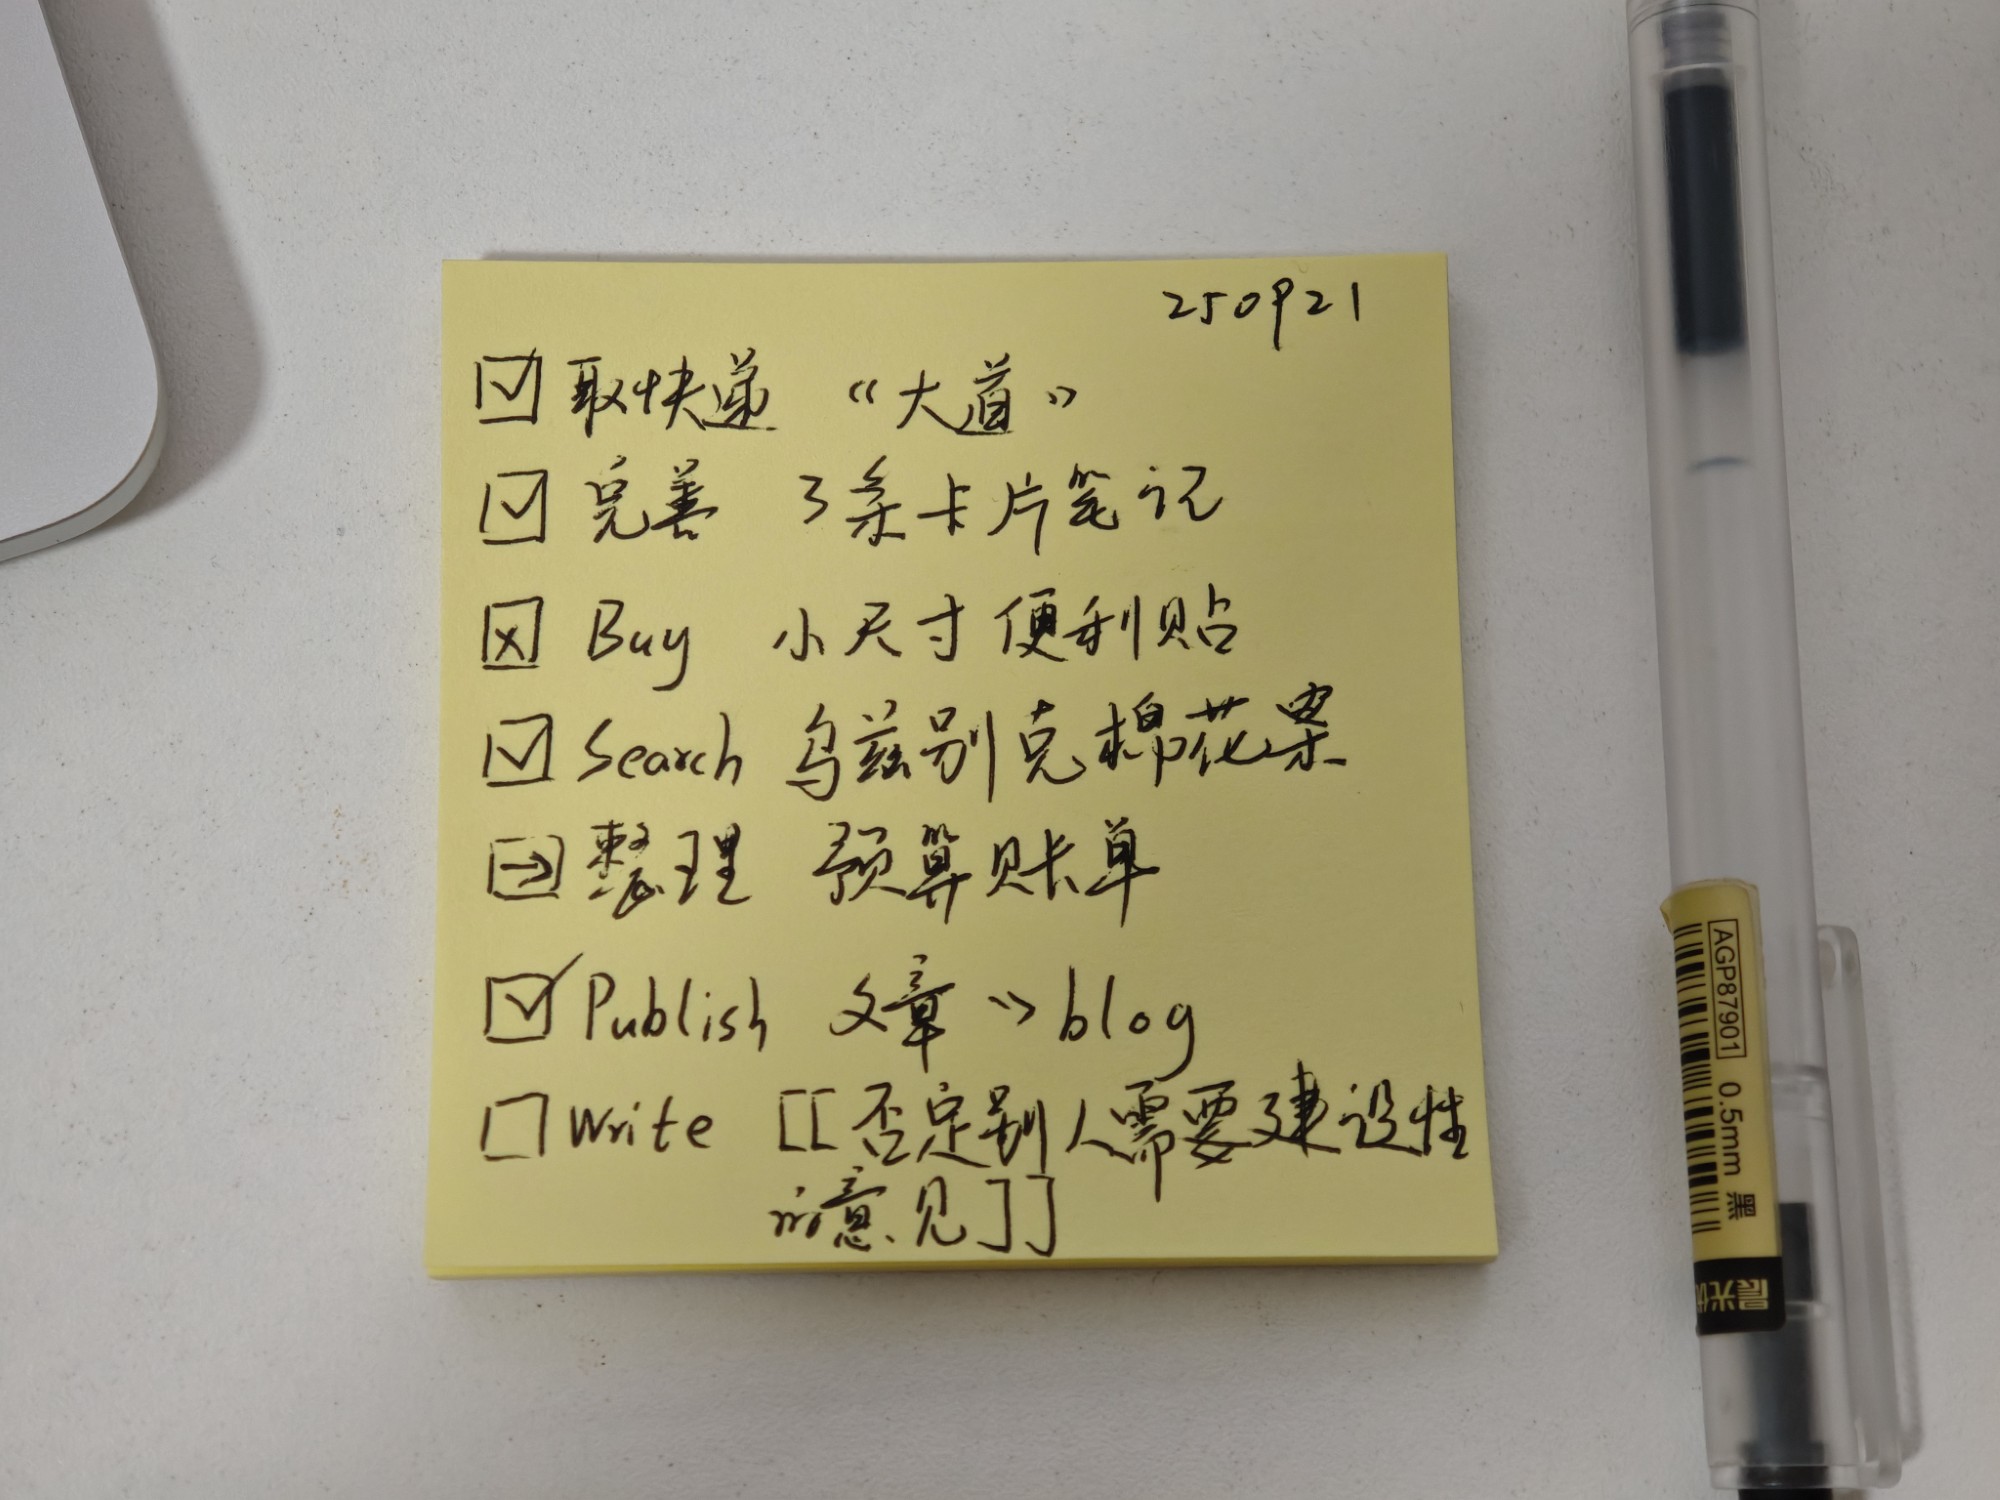 250921
☑ 取快递 《大道》
☑ 完善 3条卡片笔记
☒ Buy 小尺寸便利贴
☑ Search 乌兹别克棉花案
整理 预算账单
☑ Publish 文章 》blog
☐ Write [[否定别人需要建设性
的意见]]
AGP87901 0.5mm 黑
晨光优